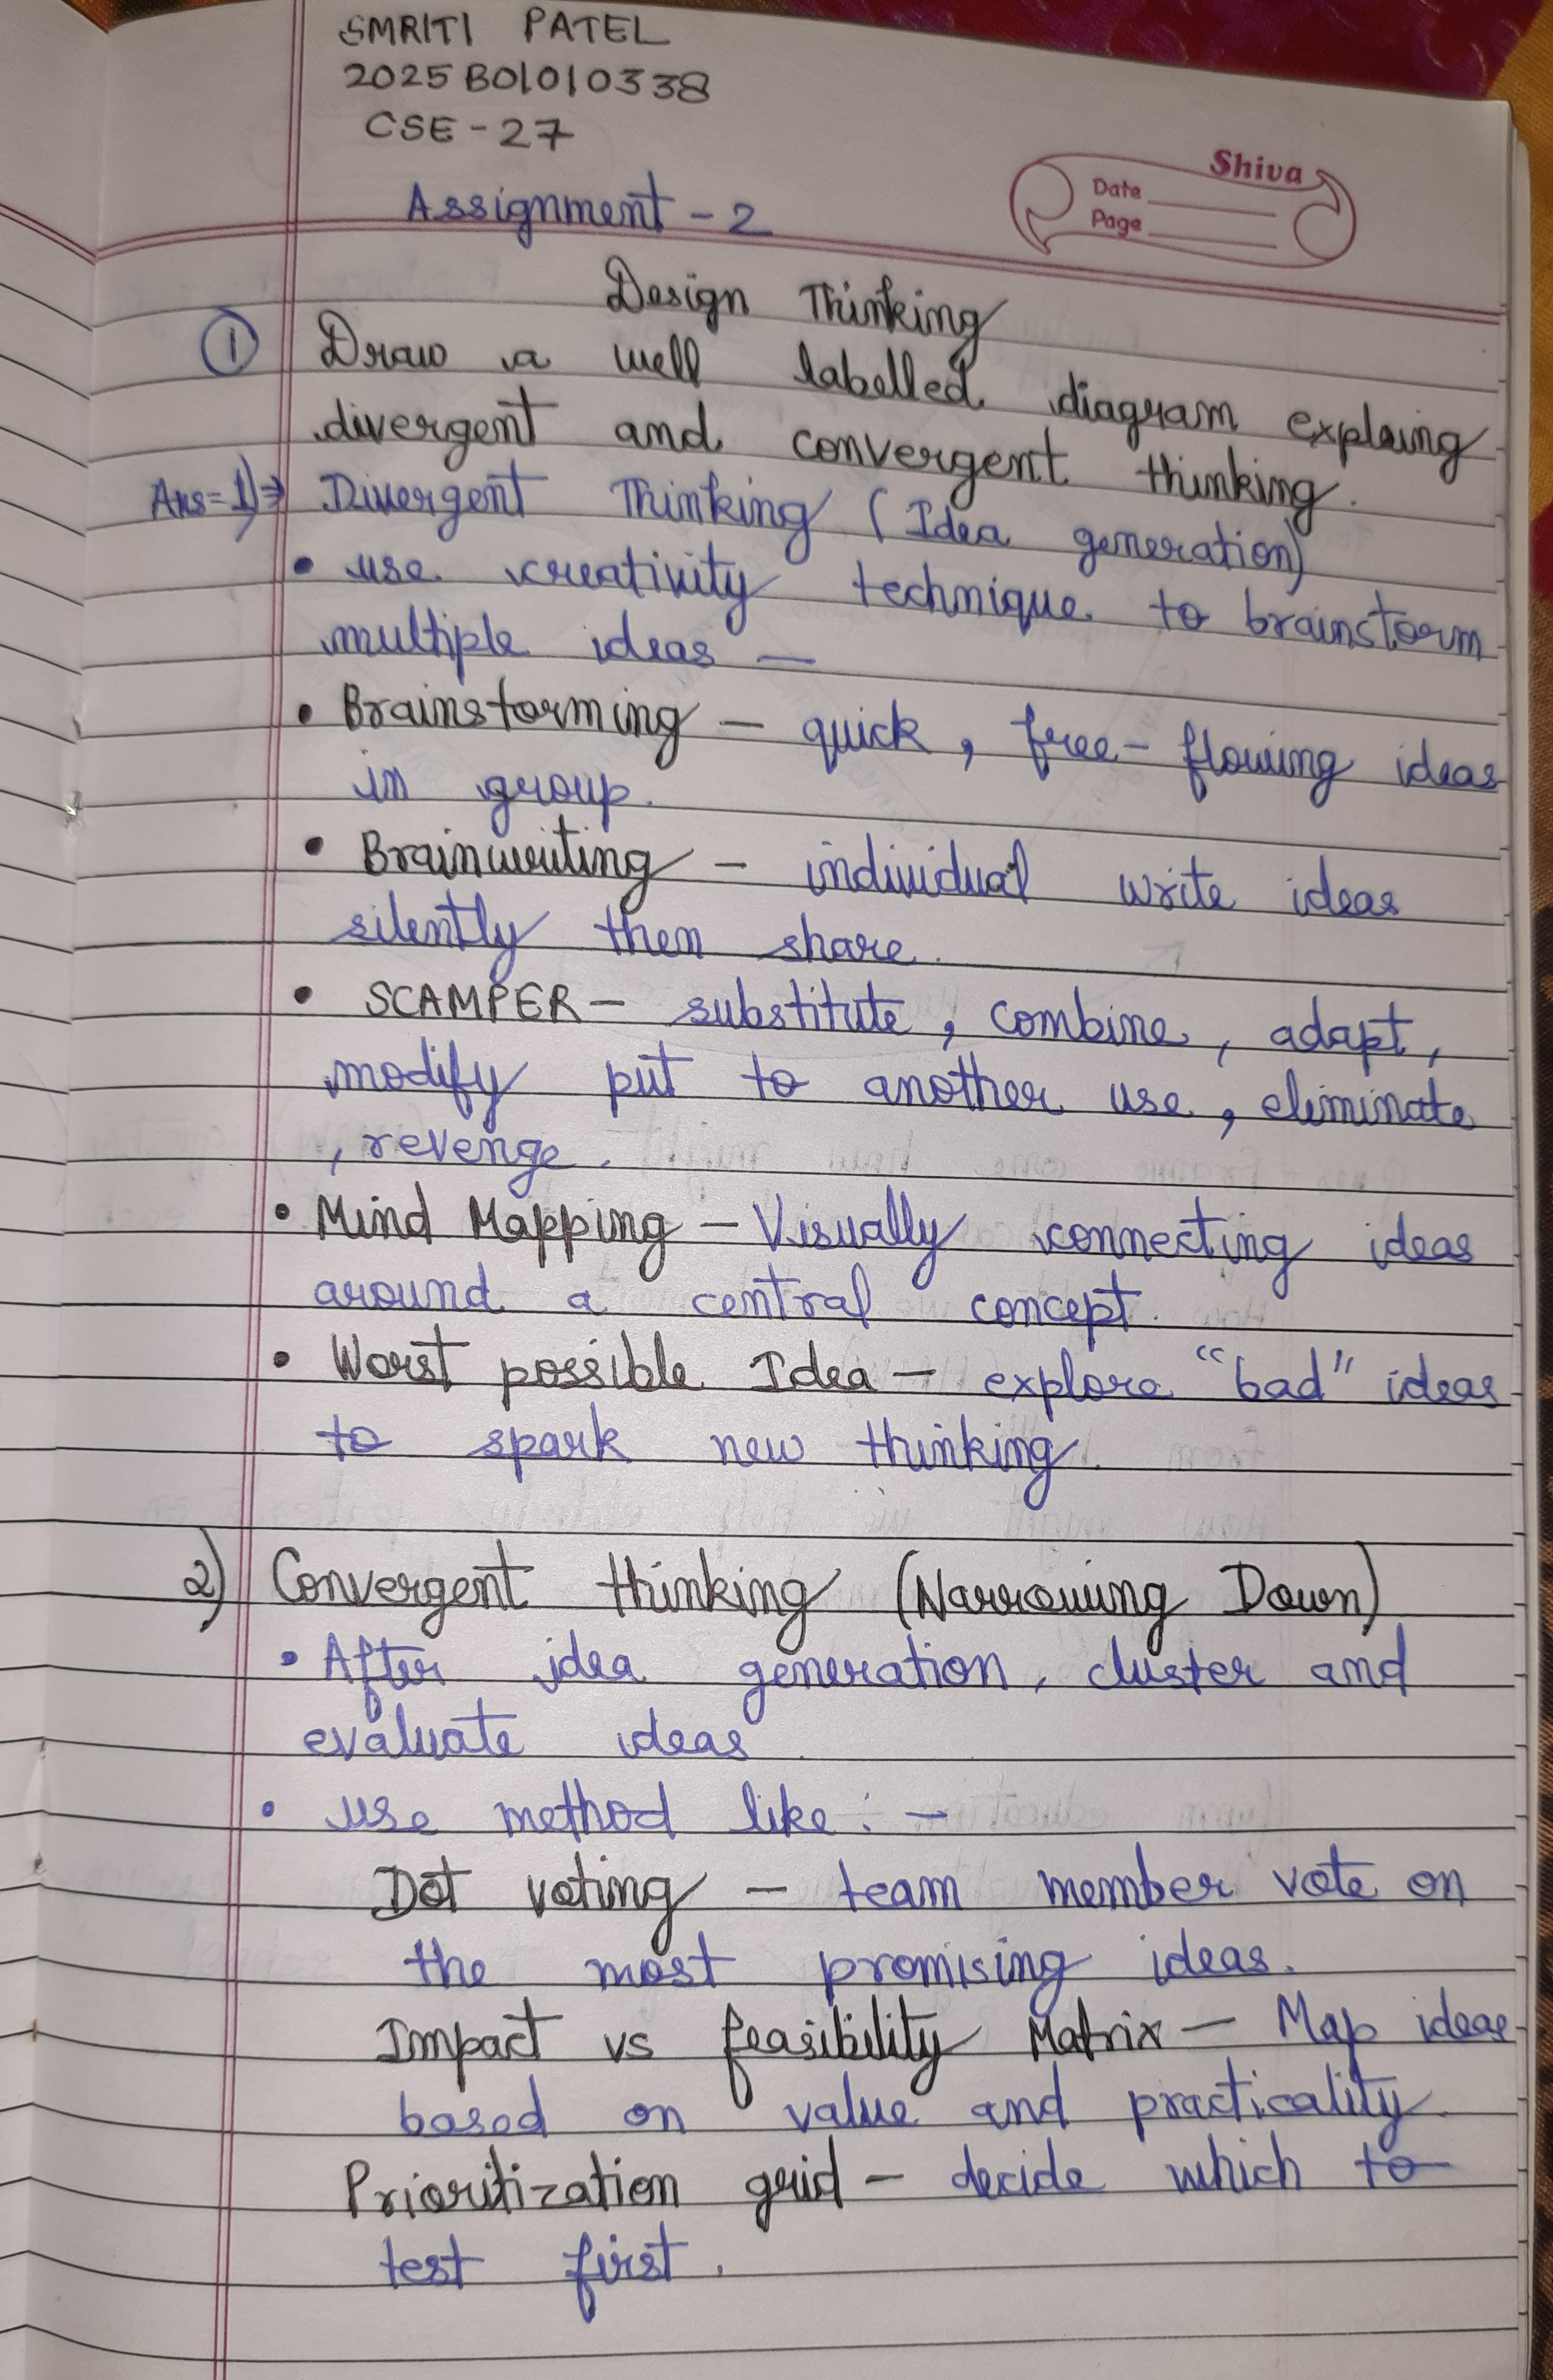 SMRITI PATEL
2025B01010338
CSE-27
Shiva
Date
Page
Assignment - 2
Design Thinking
1 Draw a well labelled diagram explaing
divergent and convergent thinking.
Ans=1)⇒ Divergent Thinking (Idea generation)
• use creativity technique to brainstorm
multiple ideas —
• Brainstorming — quick, free-flowing ideas
in group.
• Brainwriting — individual write ideas
silently then share.
• SCAMPER — substitute, combine, adapt,
modify put to another use, eliminate
, revenge.
• Mind Mapping — Visually connecting ideas
around a central concept.
• Worst possible Idea — explore "bad" ideas
to spark new thinking.
2) Convergent thinking (Narrowing Down)
• After idea generation, cluster and
evaluate ideas
• use method like : -
Dot voting — team member vote on
the most promising ideas.
Impact vs feasibility Matrix — Map ideas
based on value and practicality.
Prioritization grid — decide which to
test first.